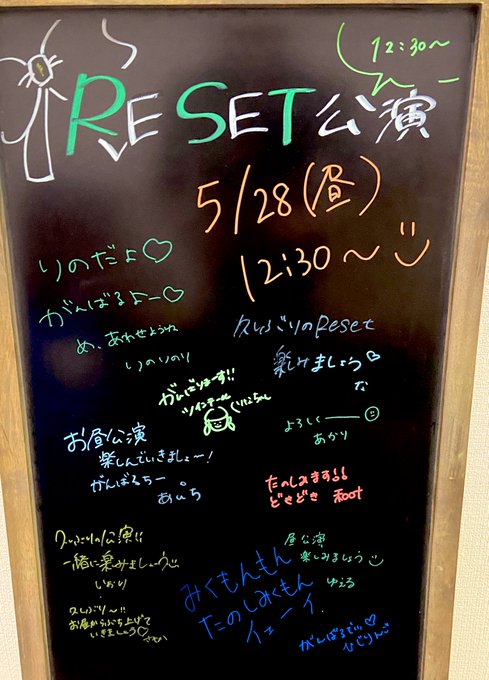 12:30〜
RESET公演
5/28(昼)
12:30〜
りのだよ♡
がんばるよー♡
め、あわせようね
いのりのり
久しぶりのReset
楽しみましょう♡
な
がんばりまーす!!
ツインテール
りこちゃん
よろしく――
あかり
お昼公演
楽しんでいきましょ〜!
がんばるちー
あいち
たのしみます!!
どきどき
久しぶりの公演!!
一緒に楽みましょーう
いおり
久しぶり〜!!
お昼からぶち上げて
いきましょう♡
昼公演
楽しみましょう
ゆえる
みくもんもん
たのしみくもん
イェーイ
がんばるぞい♡
ひじりん